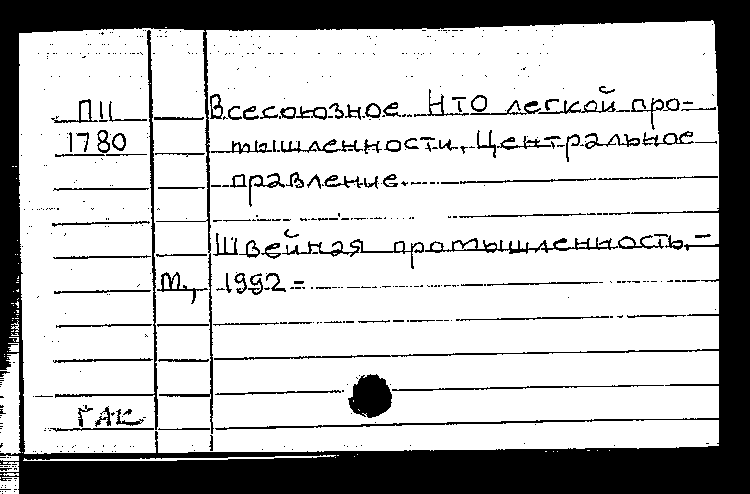 П11 Всесоюзное НТО легкой про-
1780 мышленности. Центральное
правление.
Швейная промышленность.–
М., 1992–
ГАК